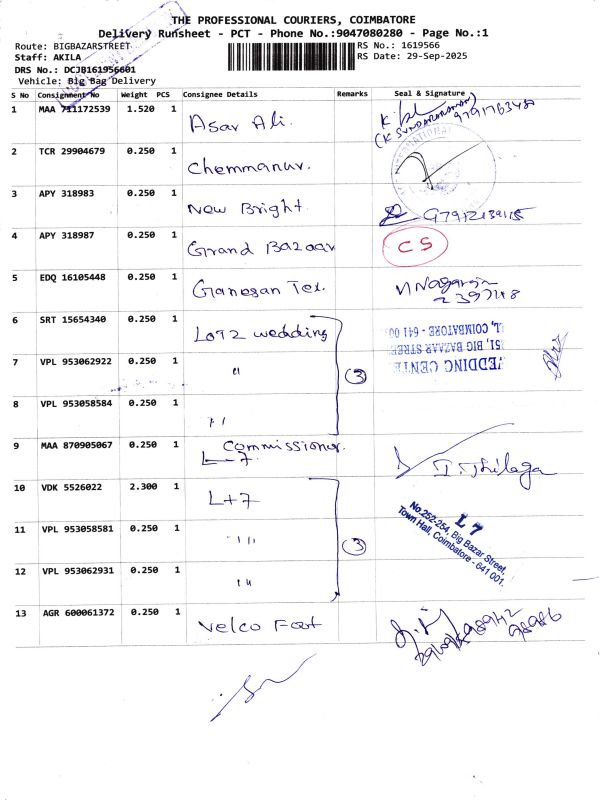 THE PROFESSIONAL COURIERS, COIMBATORE
Delivery Runsheet - PCT - Phone No.:9047080280 - Page No.:1
Route: BIGBAZARSTREET
RS No.: 1619566
Staff: AKILA
RS Date: 29-Sep-2025
DRS No.: DCJB161956601
Vehicle: Big Bag Delivery
S No Consignment No Weight PCS Consignee Details Remarks Seal & Signature
1 MAA 711172539 1.520 1 Asar Ali.
(K SUNDARARAMAN)
2 TCR 29904679 0.250 1 Chemmanur.
3 APY 318983 0.250 1 New Bright
4 APY 318987 0.250 1 Grand Bazaar CS
5 EDQ 16105448 0.250 1 Ganesan Tex. Nagaraj
6 SRT 15654340 0.250 1 wedding
7 VPL 953062922 0.250 1 " (3)
WEDDING CENT
351, BIG BAZAAR STREE
LL, COIMBATORE - 641 00
8 VPL 953058584 0.250 1 "
9 MAA 870905067 0.250 1 Commissioner.
L-7. T. Thilaga
10 VDK 5526022 2.300 1 L+7
L 7
No.252-254, Big Bazar Street,
Town Hall, Coimbatore - 641 001.
11 VPL 953058581 0.250 1 " (3)
12 VPL 953062931 0.250 1 "
13 AGR 600061372 0.250 1 Velco Foot
98942
98986